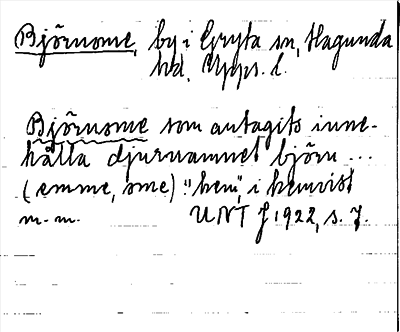 Björnome, by i Gryta sn, Hagunda
hd, Upps. l.
Björnome som antagits inne-
hålla djurnamnet björn ...
(emme, ome) :"hem", i hemvist
m.m. UNT J 1922, s. 7.